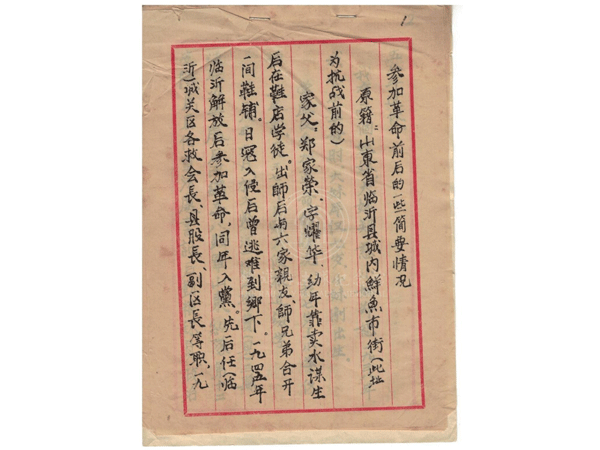 1
参加革命前后的一些简要情况
原籍：山东省临沂县城内鲜鱼市街（此址
为抗战前的）
家父，郑家荣，字耀华，幼年靠卖水谋生
后在鞋店学徒。出師后与六家親友、師兄弟合开
一间鞋铺。日寇入侵后曾逃难到鄉下。一九四五年
临沂解放后参加革命，同年入黨。先后任（临
沂）城关区各救会長、县股長、副区長等职，一九